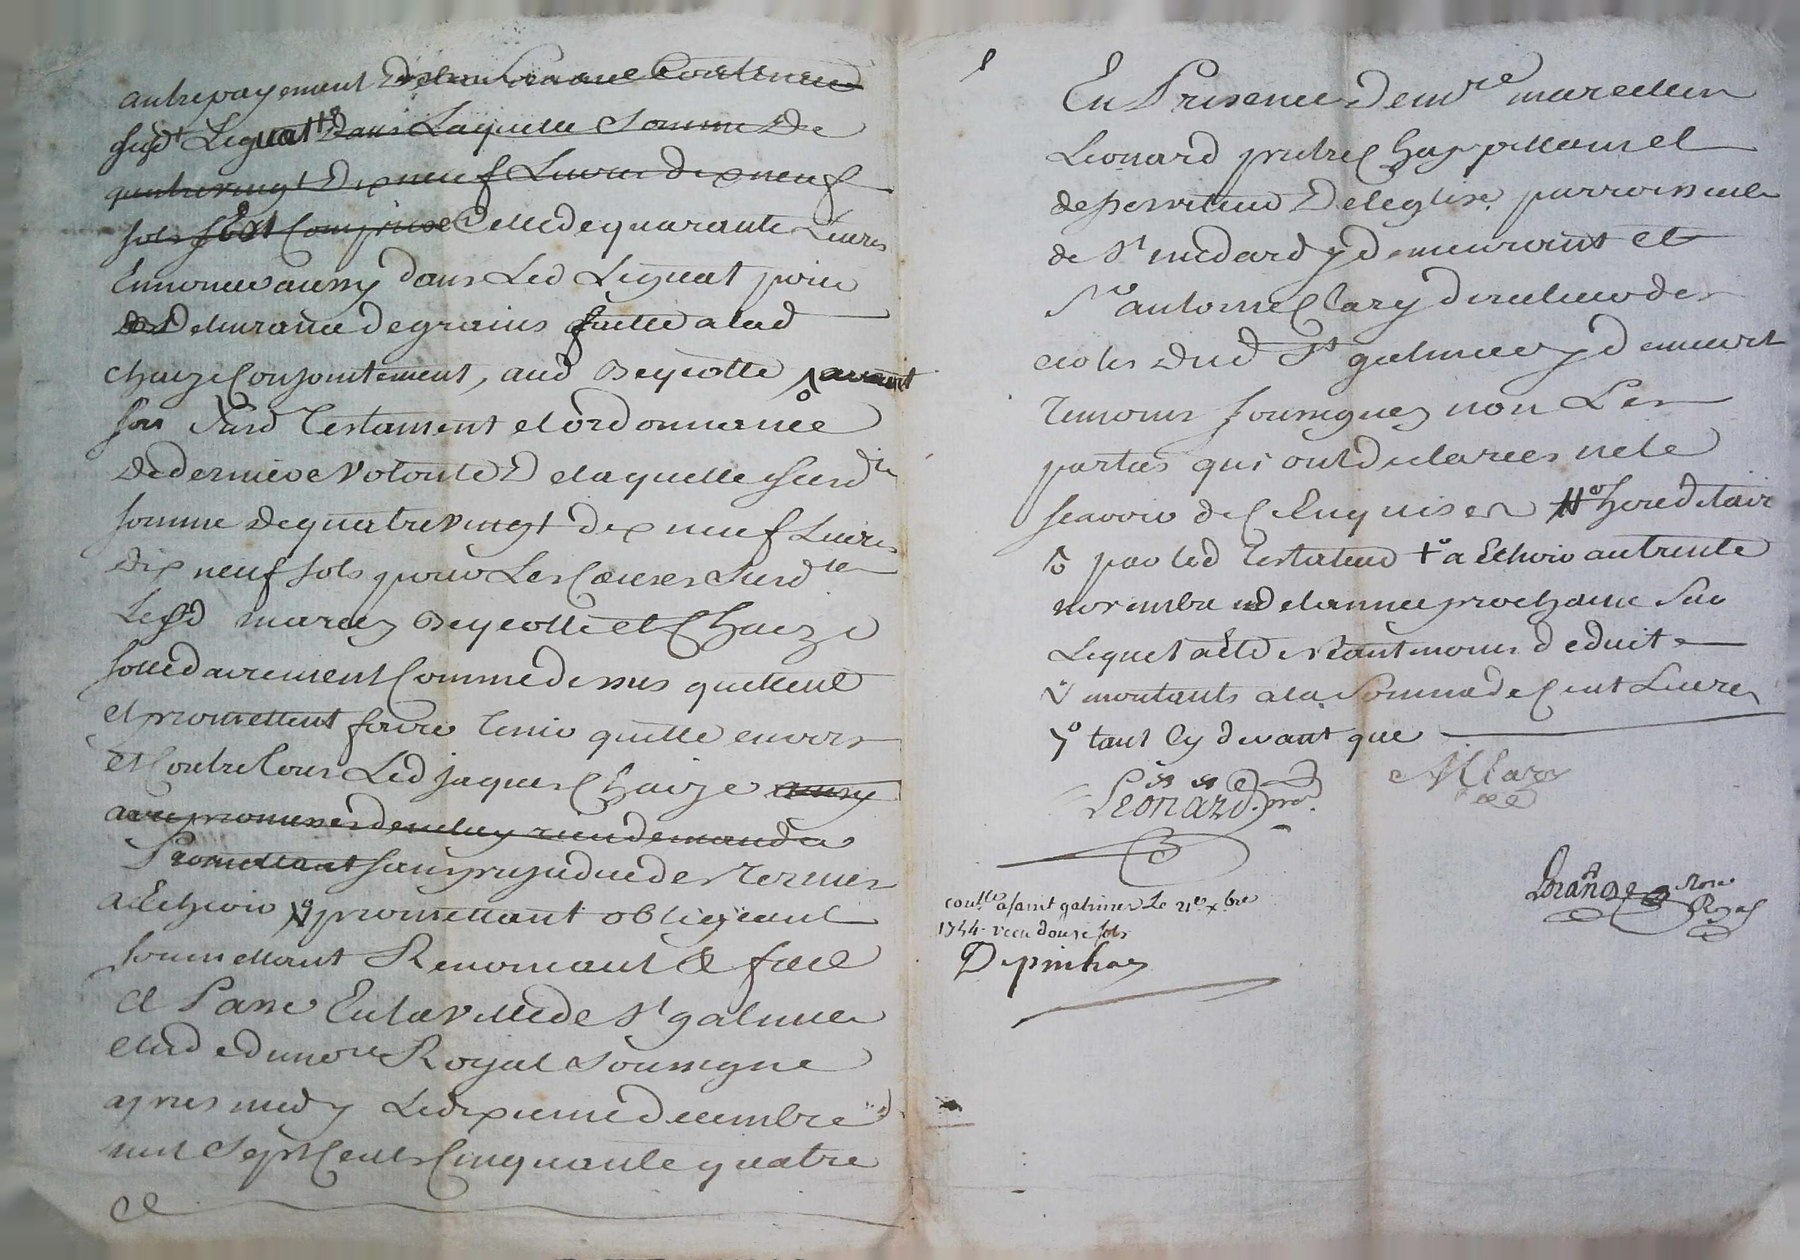 autre payement
susdt Leguatt dans Laquelle Somme de
quatrevingt Dix neuf Livres dix neuf
sols s'Est Comprise Celle de quarante Livres
Ennoncée aussy dans Led Leguat pour
Delivrance de grains faitte aud
chaize Conjointement, aud Beycotte avant
son susd Testament et ordonnance
de derniere Volonté De laquelle susdte
somme de quatrevingt dix neuf Livres
dix neuf sols pour Les Causes Susdtes
Lesd maries Beycotte et Chaize
sollidairement Comme dessus quittent
et promettent faire tenir quitte envers
et Contre tous Led jaques Chaize aussy
avec promesses de ne luy rien demander
Promettant sans prejudice des termes
a Echoir promettant obligeant
soumettant Renoncant & fait
et Passé En la Ville de St galmier
etude du nore Royal Soussigne
apres midy Le dixieme decembre
mil Sept Cents Cinquante quatre
et
En Présence de mre marcellin
Leonard pretre Chappellain et
desserviteur De l'eglise parroissialle
de St medard y demeurant et
Sr antoine Clary directeur des
ecoles dud St galmier y demeurt
temoins soussignes non Les
parties qui ont declarees ne le
scavoir de Ce Enquises hereditaire
par led Testateur a Echoir au trente
novembre de l'année prochaine Sur
Lequel a été neantmoins deduit
montants a la Somme de Cent Livres
7o tant Cy devant que
Léonard. pre.
A Clary
Contlé a saint galmier Le 21e xbre
1754 - recu douze sols
Depinhac
nore
Royal